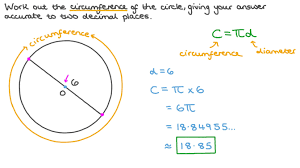 Work out the circumference of the circle, giving your answer
accurate to two decimal places.
circumference
6
O
C = πd
circumference
diameter
d = 6
C = π × 6
= 6π
= 18.84955...
≈ 18.85